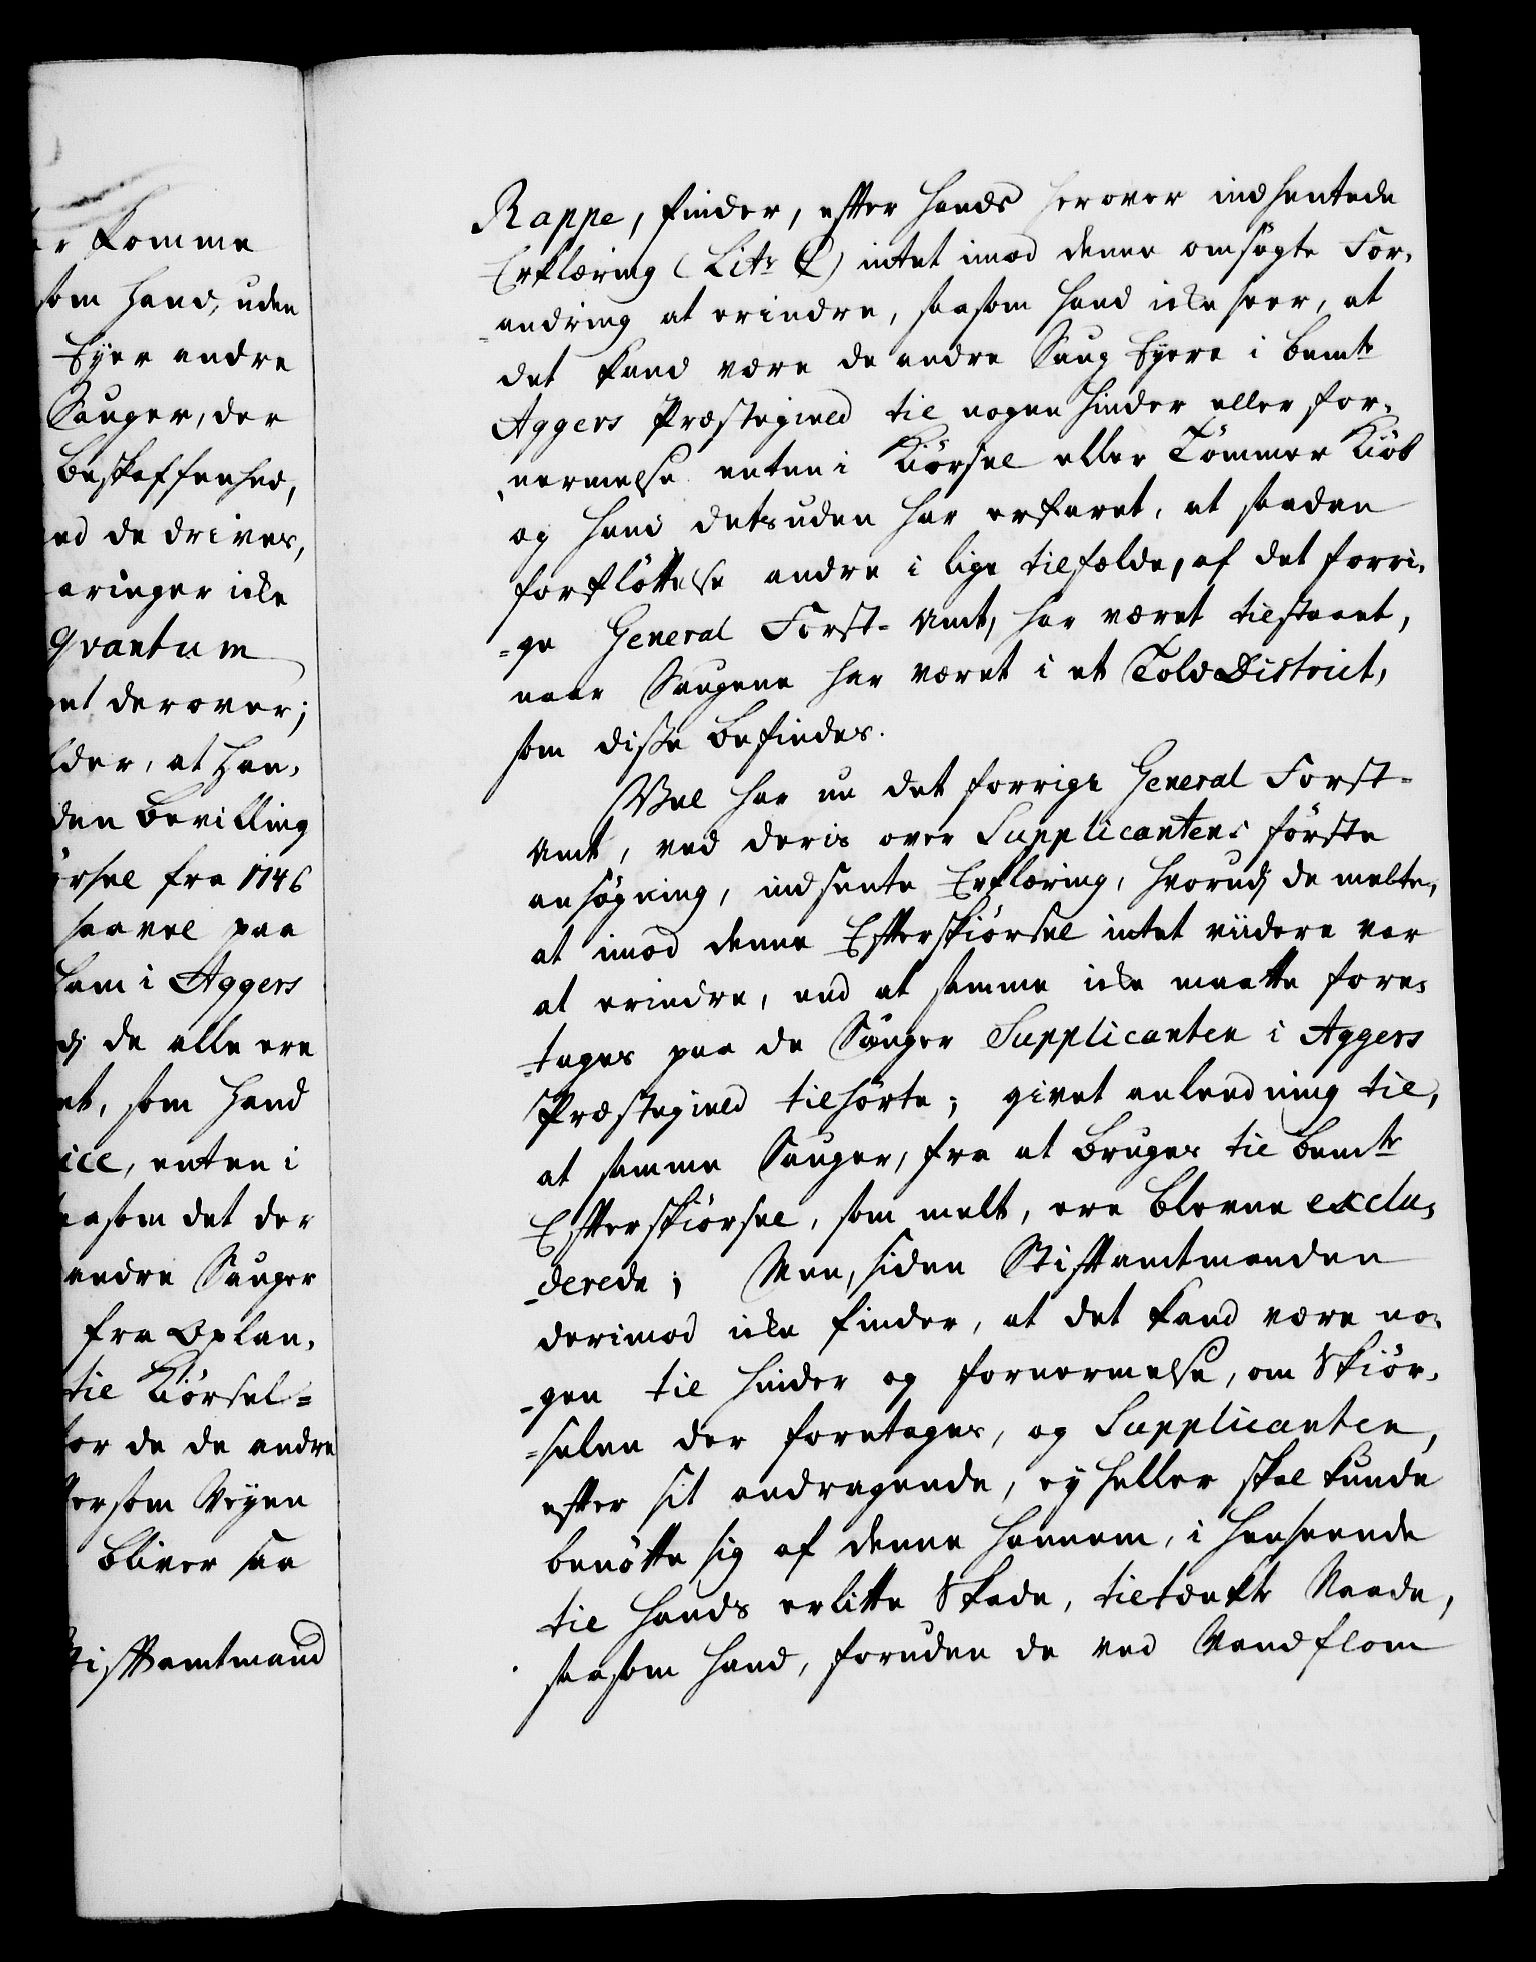 er komme
som hand, uden
Eyer andre
Sauger, der
beskaffenhed,
ed de drives,
aringer icke
Qvantum
et derover;
lder, at han,
den bevilling
ørsel fra 1746
saavel paa
ham i Aggers
dj de alle ere
et, som hand
ice, enten i
saasom det der
andre Sauger
fra Oplan,
til Kiørsel=
for de de andre
dersom Veyen
bliver saa
Stiftamtmand
Rappe, finder, efter hands herover indhentede
Erklæring (Litr C) intet imod denne omsøgte For,
=andring at erindre, saasom hand icke seer, at
det kand være de andre Saug Eyere i bemte
Aggers Præstegield til nogen hinder eller for,
,nermelse enten i Kiørsel eller Tømmer Kiøb
og hand desuden har erfaret, at saadan
forfløttelse andre i lige tilfælde, af det forri,
=ge General Forst= Amt, har været tilstaaet,
naar Saugene har været i et Told District,
som disse befindes.
Vel har nu det forrige General Forst=
Amt, ved deris over Supplicantens første
ansøgning, indsente Erklæring, hvorudj de melte,
at imod denne Efterskiørsel intet viidere var
at erindre, end at samme icke maatte fore,
=tages paa de Sauger Supplicanten i Aggers
Præstegield tilhørte; givet anleedning til,
at samme Sauger, fra at bruges til bemte
Efterskiørsel, som melt, ere blevne exclu,
=derede; Men, siden Stiftamtmanden
derimod icke finder, at det kand være no,
=gen til hinder og fornermelse, om Skiør,
=selen der foretages, og Supplicanten,
efter sit andragende, ey heller skal kunde
benøtte sig af denne hannem, i henseende
til hands erlitte Skade, tiltænkte Naade,
saasom hand, foruden de ved Vandflom